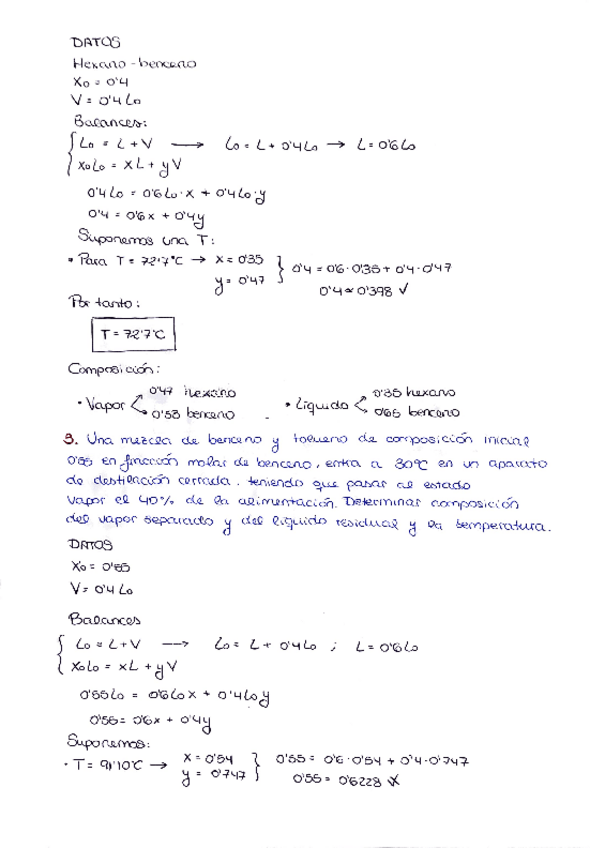 DATOS
Hexano - benceno
X₀ = 0'4
V = 0'4 L₀
Balances:
L₀ = L + V → L₀ = L + 0'4L₀ → L = 0'6L₀
X₀L₀ = XL + yV
0'4L₀ = 0'6L₀·X + 0'4L₀·y
0'4 = 0'6X + 0'4y
Suponemos una T:
• Para T = 72'7°C → X = 0'35
y = 0'47
0'4 = 0'6·0'35 + 0'4·0'47
0'4 ≈ 0'398 ✓
Por tanto:
T = 72'7°C
Composición:
• Vapor 0'47 hexano
0'53 benceno
• Líquido 0'35 hexano
0'65 benceno
3. Una mezcla de benceno y tolueno de composición inicial
0'55 en fracción molar de benceno, entra a 30°C en un aparato
de destilación cerrada, teniendo que pasar al estado
vapor el 40% de la alimentación. Determinar composición
del vapor separado y del líquido residual y la temperatura.
DATOS
X₀ = 0'55
V = 0'4 L₀
Balances
L₀ = L + V → L₀ = L + 0'4L₀ ; L = 0'6L₀
X₀L₀ = XL + yV
0'55L₀ = 0'6L₀X + 0'4L₀y
0'55 = 0'6X + 0'4y
Suponemos:
• T = 91'10°C → X = 0'54
y = 0'747
0'55 = 0'6·0'54 + 0'4·0'747
0'55 = 0'6228 ✗